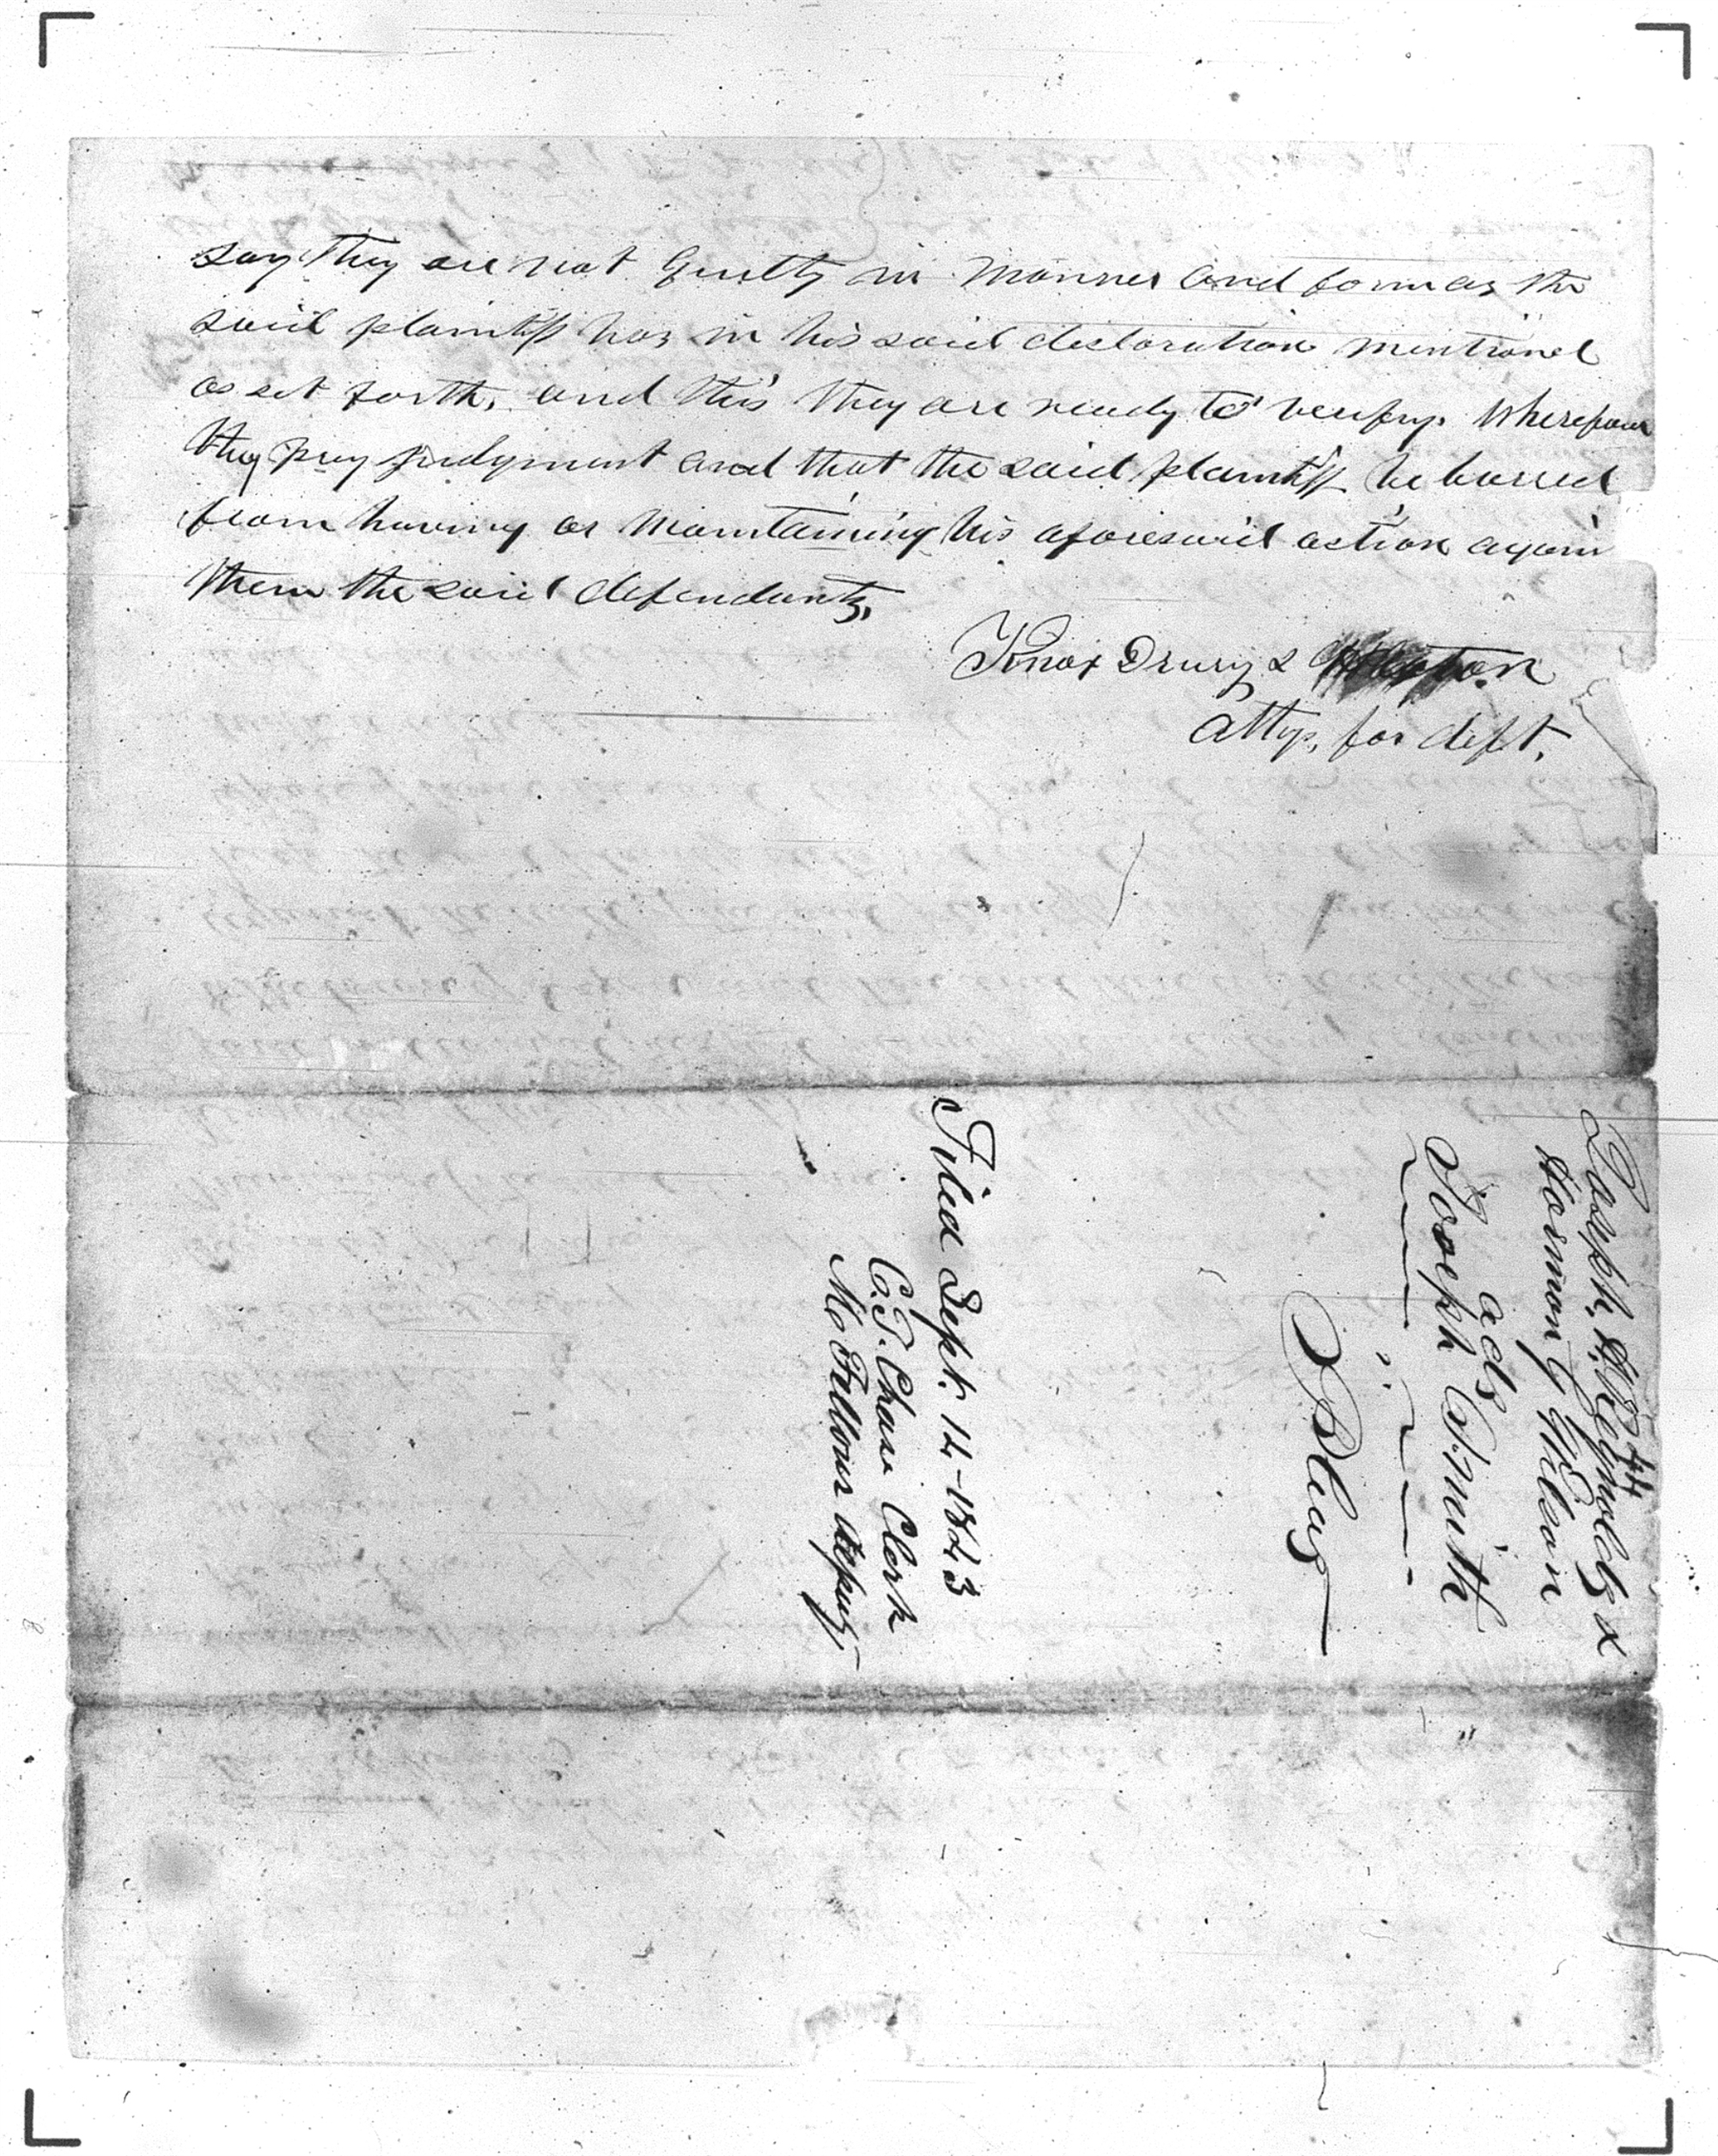 say they are not Guilty in manner and form as the
said plaintiff has in his said declaration mentioned
as set forth, and this they are ready to verify. Wherefore
they pray judgment and that the said plaintiff be barred
from having or maintaining his aforesaid action again
them the said defendants,
Knox Drury &
Attys, for deft,
44
Joseph H. Reynolds &
Harmon G Wilson
ads
Joseph Smith
Plea
Filed Sept. 14-1843
C.T. Chase Clerk
Mc Fellows deputy